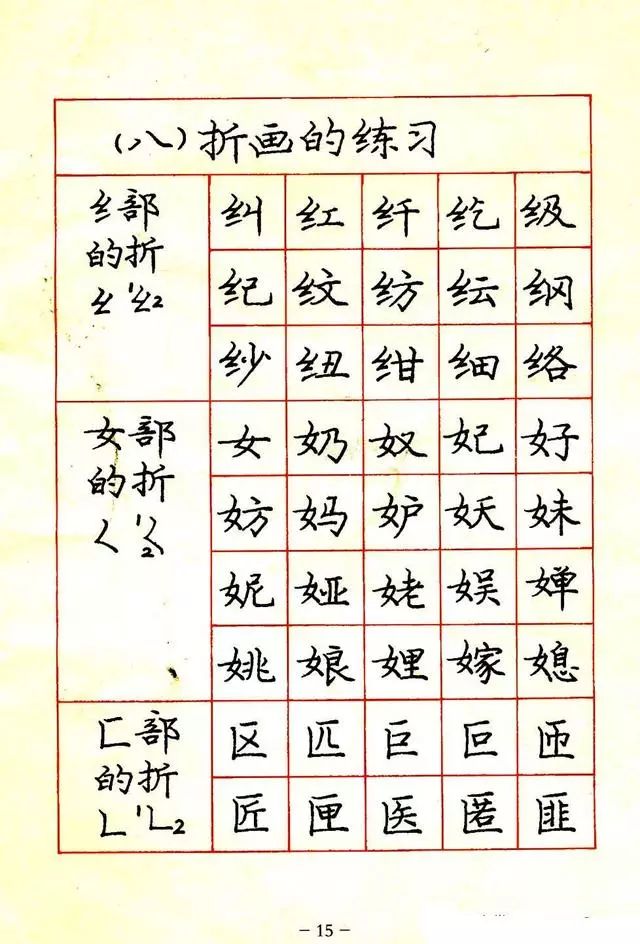 (八)折画的练习
纟部
的折
纠 红 纤 纥 级
纪 纹 纺 纭 纲
纱 纽 绀 细 络
女部
的折
女 奶 奴 妃 好
妨 妈 妒 妖 妹
妮 娅 姥 娱 婵
姚 娘 娌 嫁 媳
匚部
的折
区 匹 巨 叵 匝
匠 匣 医 匿 匪
- 15 -